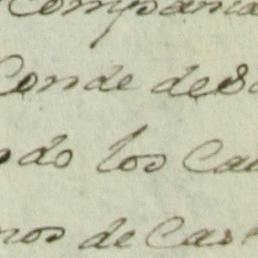 Compania
Conde de S
ndo los Ca
nos de Car